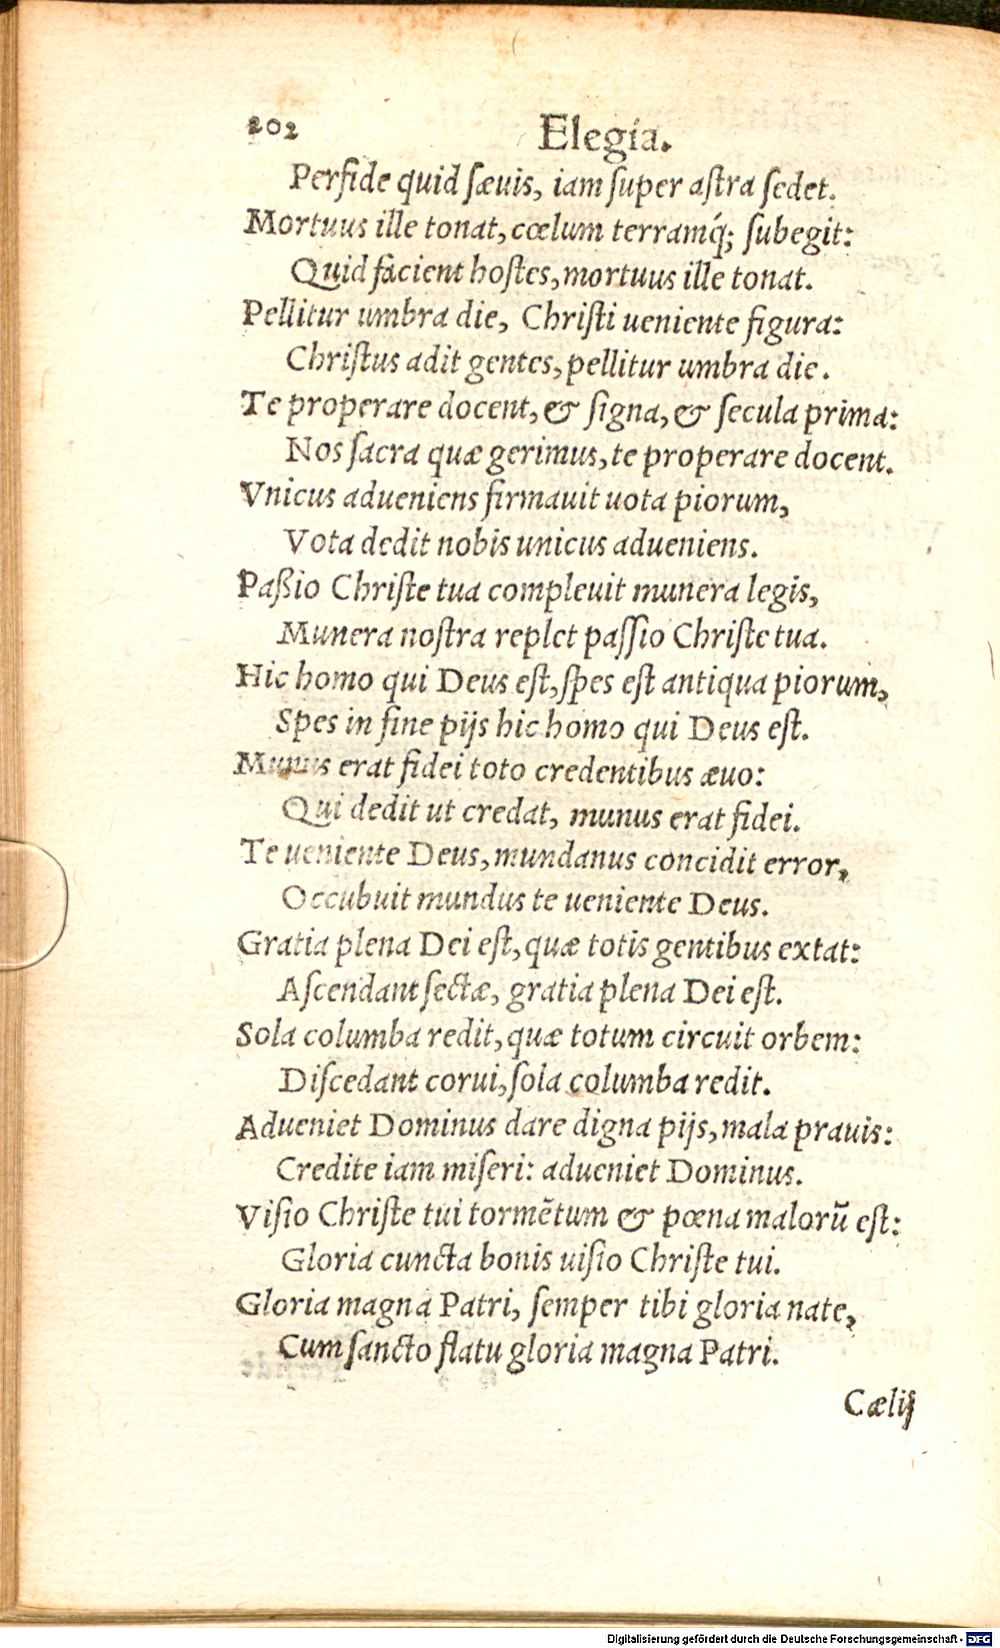 202 Elegia.
Perfide quid sæuis, iam super astra sedet.
Mortuus ille tonat, cœlum terramq́; subegit:
Quid facient hostes, mortuus ille tonat.
Pellitur umbra die, Christi ueniente figura:
Christus adit gentes, pellitur umbra die.
Te properare docent, & signa, & secula prima:
Nos sacra quæ gerimus, te properare docent.
Vnicus adueniens firmauit uota piorum,
Vota dedit nobis unicus adueniens.
Paßio Christe tua compleuit munera legis,
Munera nostra replet passio Christe tua.
Hic homo qui Deus est, spes est antiqua piorum,
Spes in fine pijs hic homo qui Deus est.
Munus erat fidei toto credentibus æuo:
Qui dedit ut credat, munus erat fidei.
Te ueniente Deus, mundanus concidit error,
Occubuit mundus te ueniente Deus.
Gratia plena Dei est, quæ totis gentibus extat:
Ascendant sectæ, gratia plena Dei est.
Sola columba redit, quæ totum circuit orbem:
Discedant corui, sola columba redit.
Adueniet Dominus dare digna pijs, mala prauis:
Credite iam miseri: adueniet Dominus.
Visio Christe tui tormẽtum & pœna malorũ est:
Gloria cuncta bonis uisio Christe tui.
Gloria magna Patri, semper tibi gloria nate,
Cum sancto flatu gloria magna Patri.
Cælij
Digitalisierung gefördert durch die Deutsche Forschungsgemeinschaft - DFG